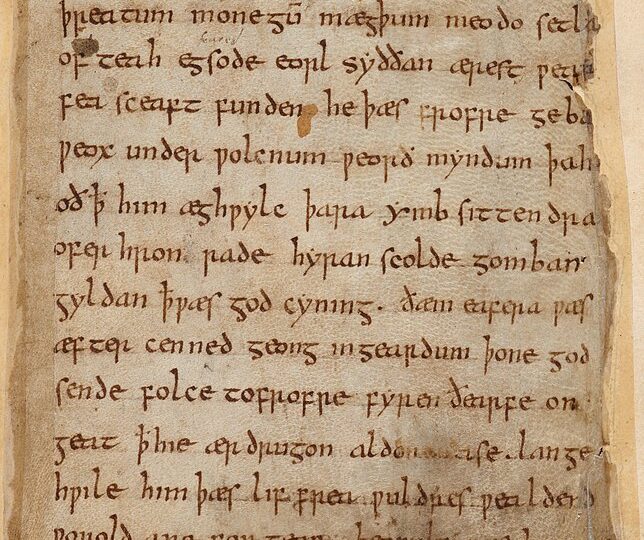 þreatum monegū mægþum meodo setla
of teah egsode eorl syððan ærest ƿear
fea sceaft funden he þæs frofre geba
ƿeox under ƿolcnum ƿeorð myndum þah
oð ꝥ him æghƿylc þara ymb sittendra
ofer hron rade hyran scolde gomban
gyldan ꝥ ƿæs god cyning. ðæm eafera ƿæs
æfter cenned geong ingeardum þone god
sende folce tofrofre fyren ðearfe on
geat ꝥ hie ær drugon aldor ase. lange
hƿile him þæs lif frea ƿuldres ƿealdend